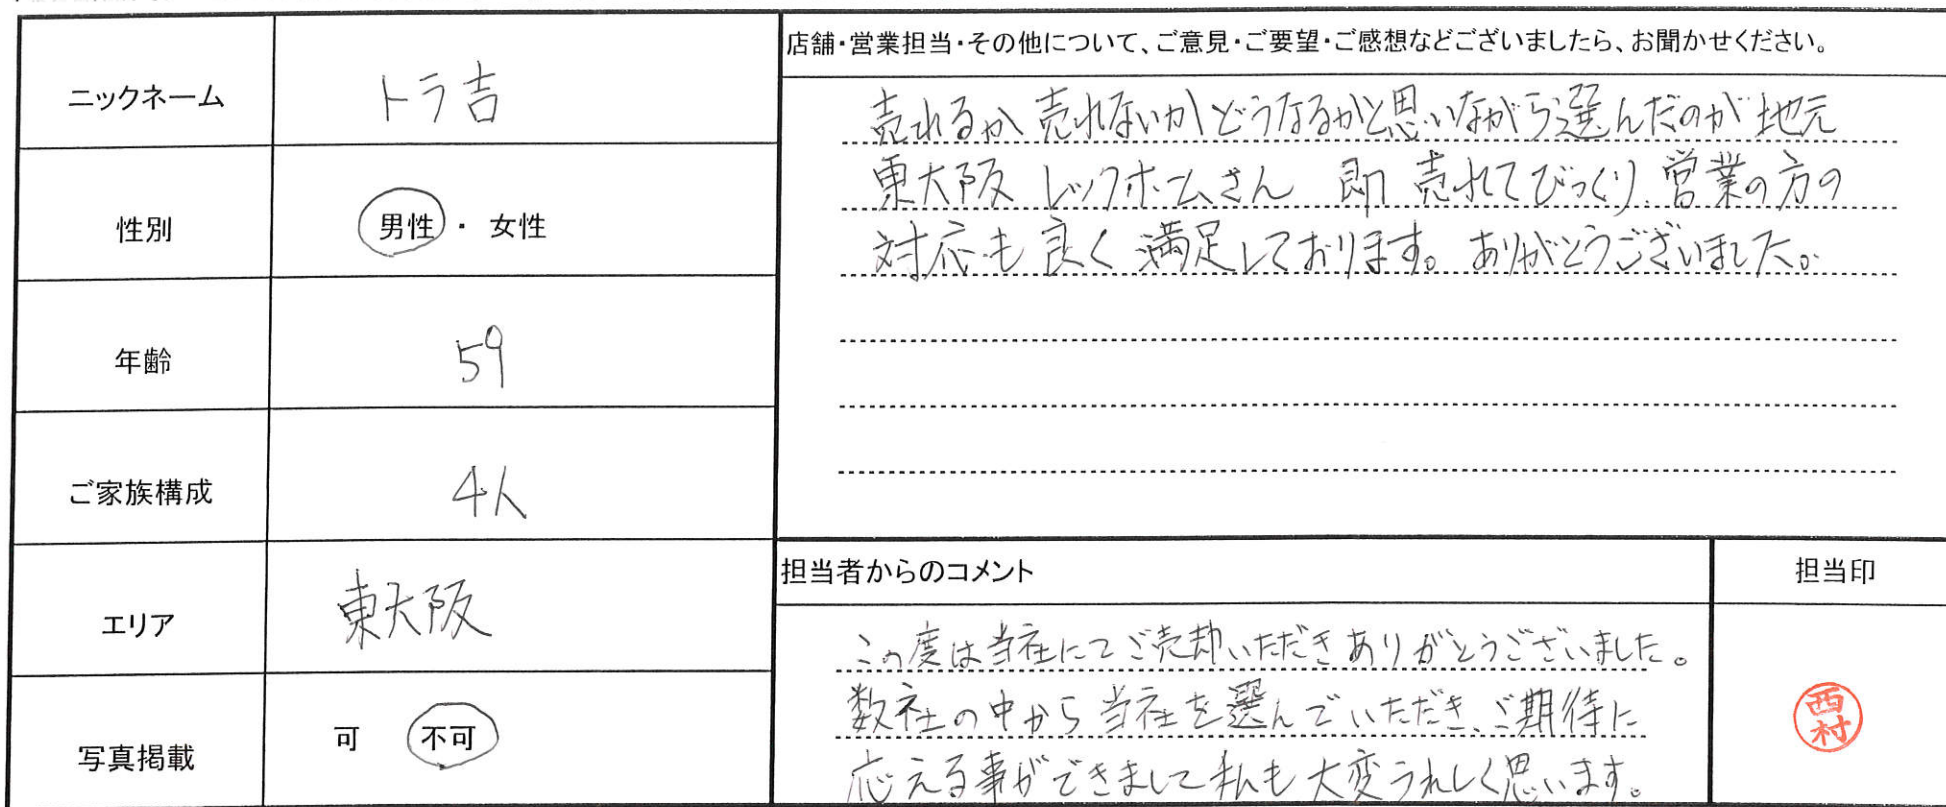 ニックネーム トラ吉
性別 男性・女性
年齢 59
ご家族構成 4人
エリア 東大阪
写真掲載 可 不可
店舗・営業担当・その他について、ご意見・ご要望・ご感想などございましたら、お聞かせください。
売れるか売れないかどうなるかと思いながら選んだのが地元
東大阪レックホームさん 即売れてびっくり 営業の方の
対応も良く満足しております。ありがとうございました。
担当者からのコメント
この度は当社にてご売却いただきありがとうございました。
数社の中から当社を選んでいただき、ご期待に
応える事ができまして私も大変うれしく思います。
担当印
西村